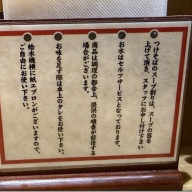 つけそばのスープ割りは、スープの器を
上げて頂き、スタッフにお申し付け下さい
お水はセルフサービスとなっております。
商品は調理の都合上、提供の順番が前後する
場合がございます。
お味を足す際は卓上のタレをお使い下さい。
給水機横に紙エプロンがございますので、
ご自由にお使い下さい。